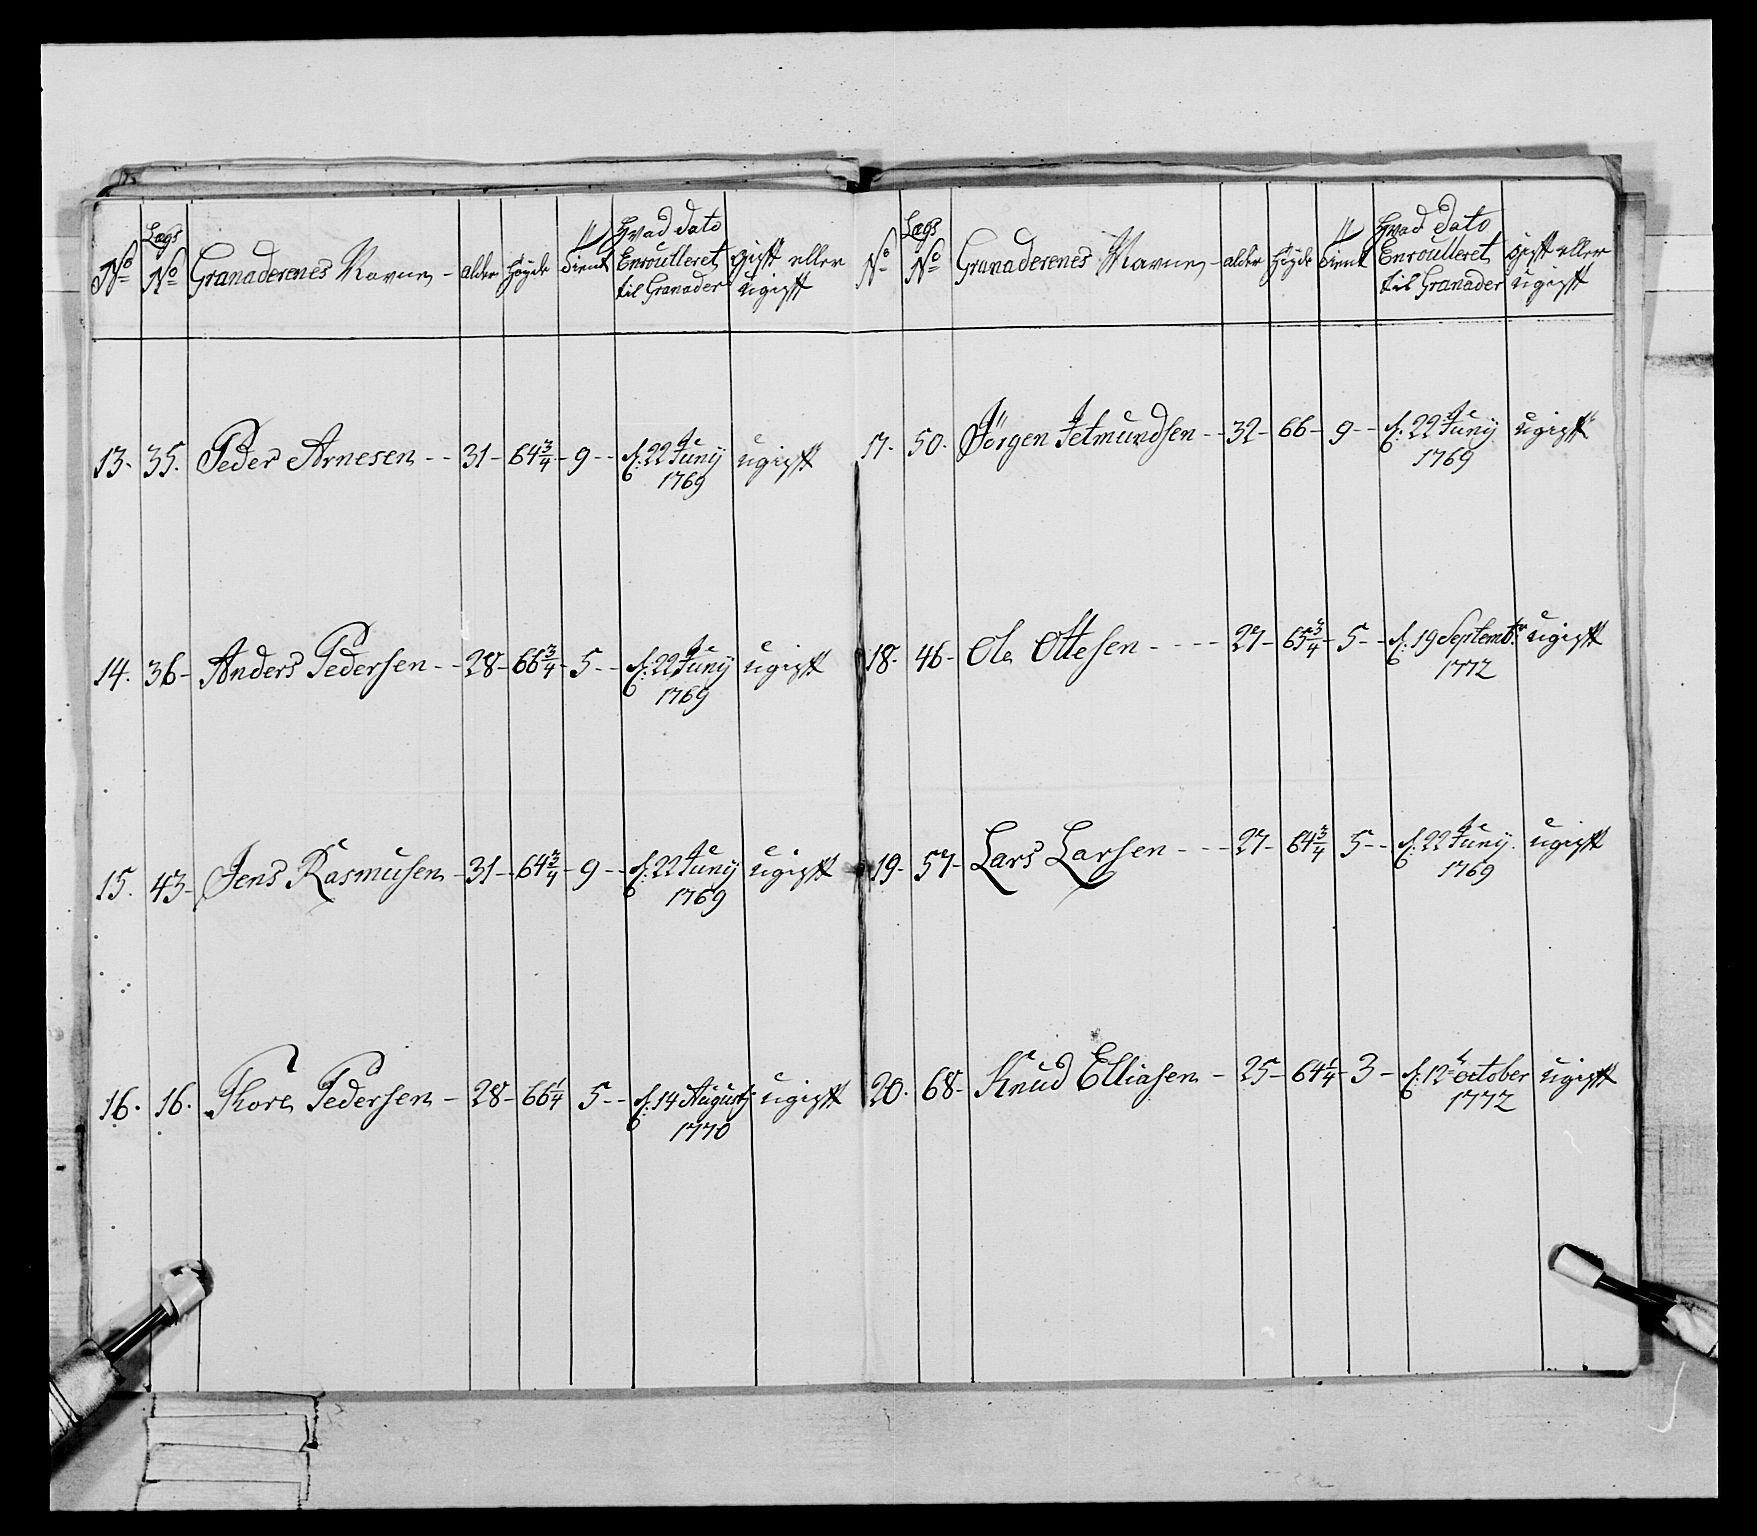 No Lægs No Granaderenes Navne - alder Høyde Tient Hvad Dato Enroulleret til Granader gift eller ugift
13. 35. Peder Arnesen -- 31- 64 3/4 - 9 -- d: 22de Juny 1769 ugift
14. 36- Anders Pedersen -- 28- 66 3/4 - 5 -- d: 22de Juny 1769 ugift
15. 43- Jens Rasmusen - 31- 64 3/4 - 9 -- d: 22de Juny 1769 ugift
16. 16. Thore Pedersen - 28- 66 1/4 5 -- d: 14 August: 1770 ugift
No Lægs No Granaderenes Navne - alder Høyde Tient Hvad Dato Enroulleret til Granader gift eller ugift
17. 50. Jørgen Jetmundsen -- 32- 66- 9 -- d: 22de Juny 1769 ugift
18. 46- Ole Ottesen ---- 27- 65 3/4 - 5 -- d: 19 Septembr: 1772 ugift
19. 57- Lars Larsen --- 27- 64 3/4 5 -- d: 22de Juny. 1769 ugift
20. 68- Knud Elliasen - 25- 64 1/4 - 3 - d: 12te October 1772 ugift